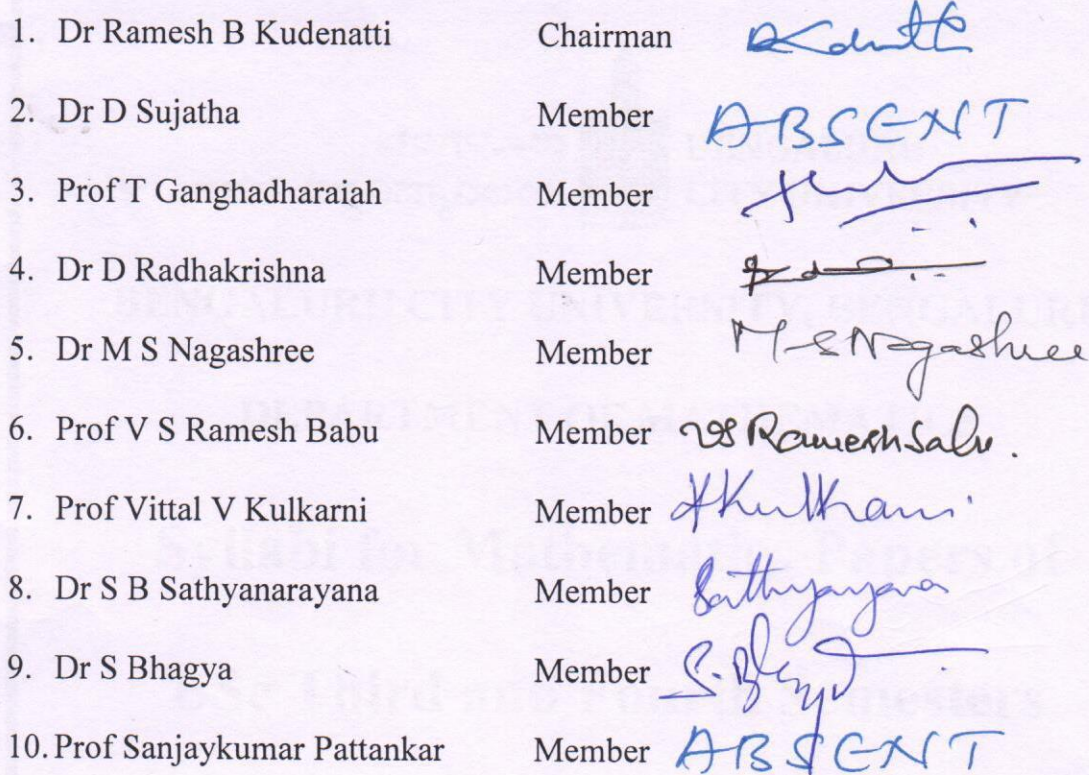 1. Dr Ramesh B Kudenatti Chairman
2. Dr D Sujatha Member ABSENT
3. Prof T Ganghadharaiah Member
4. Dr D Radhakrishna Member
5. Dr M S Nagashree Member M S Nagashree
6. Prof V S Ramesh Babu Member VS Ramesh Babu.
7. Prof Vittal V Kulkarni Member
8. Dr S B Sathyanarayana Member
9. Dr S Bhagya Member
10. Prof Sanjaykumar Pattankar Member ABSENT